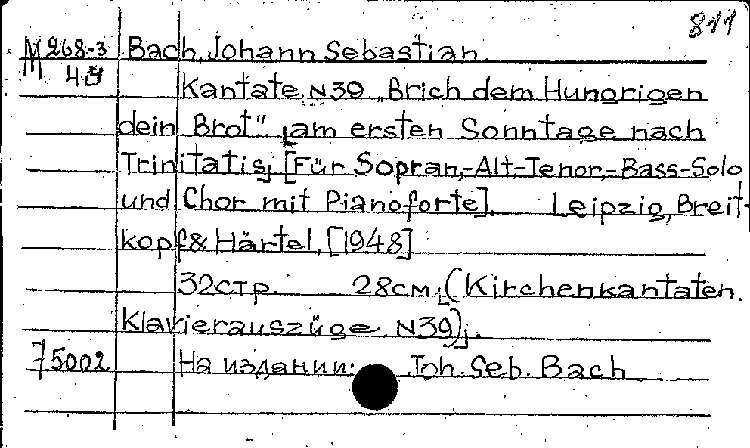 811
M 268-3 Bach, Johann Sebastian.
Kantate N39 „Brich dem Hungrigen
dein Brot" [am ersten Sonntage nach
Trinitatis]. [Für Sopran,-Alt-Tenor,-Bass-Solo
und Chor mit Pianoforte]. Leipzig, Breit-
kopf & Härtel, [1948]
32стр. 28см. (Kirchenkantaten.
Klavierauszüge N39).
75002 На издании: Joh. Seb. Bach